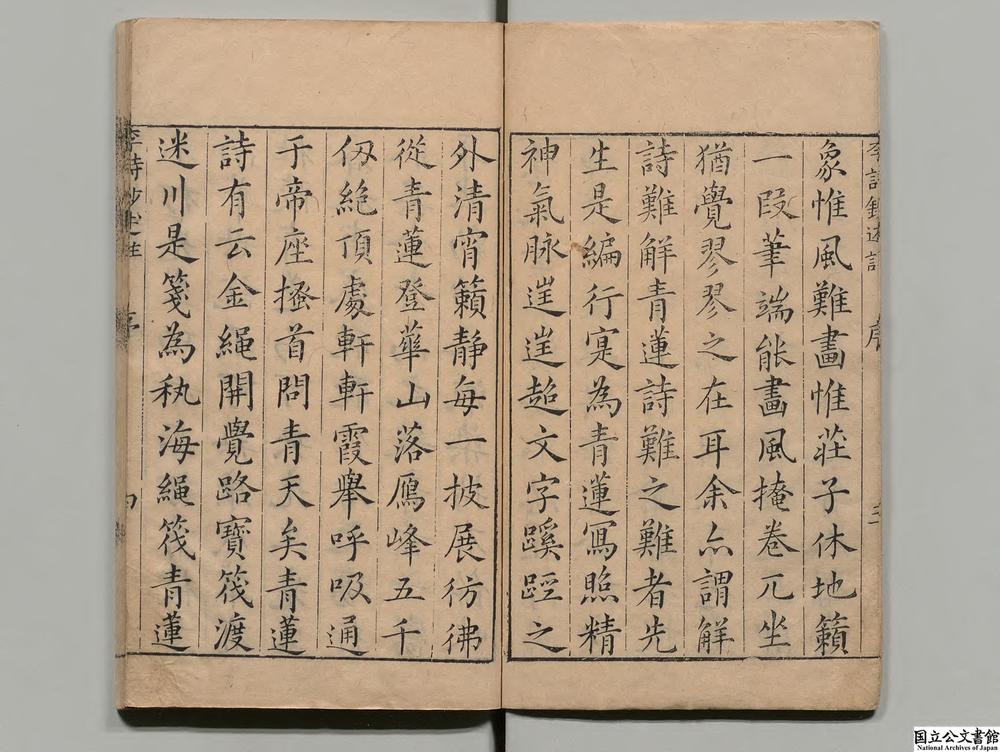 象惟風難畫惟莊子休地籟
一段筆端能畫風掩卷兀坐
猶覺翏翏之在耳余亦謂解
詩難解青蓮詩難之難者先
生是編行寔為青蓮冩照精
神氣脉𨓏𨓏超文字蹊踁之
外清宵籟静每一披展彷彿
從青蓮登華山落鴈峰五千
仭絶頂處軒軒霞舉呼吸通
于帝座搔首問青天矣青蓮
詩有云金繩開覺路寶筏渡
迷川是箋為秇海繩筏青蓮
国立公文書館
National Archives of Japan